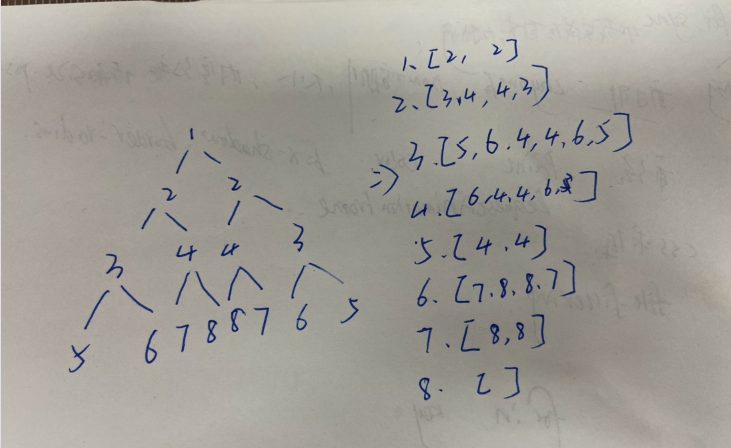 1
2 2
3 4 4 3
5 6 7 8 8 7 6 5
=>
1. [2, 2]
2. [3,4, 4,3]
3. [5, 6. 4, 4, 6, 5]
4. [6,4,4,6]
5. [4.4]
6. [7.8.8.7]
7. [8,8]
8. [ ]